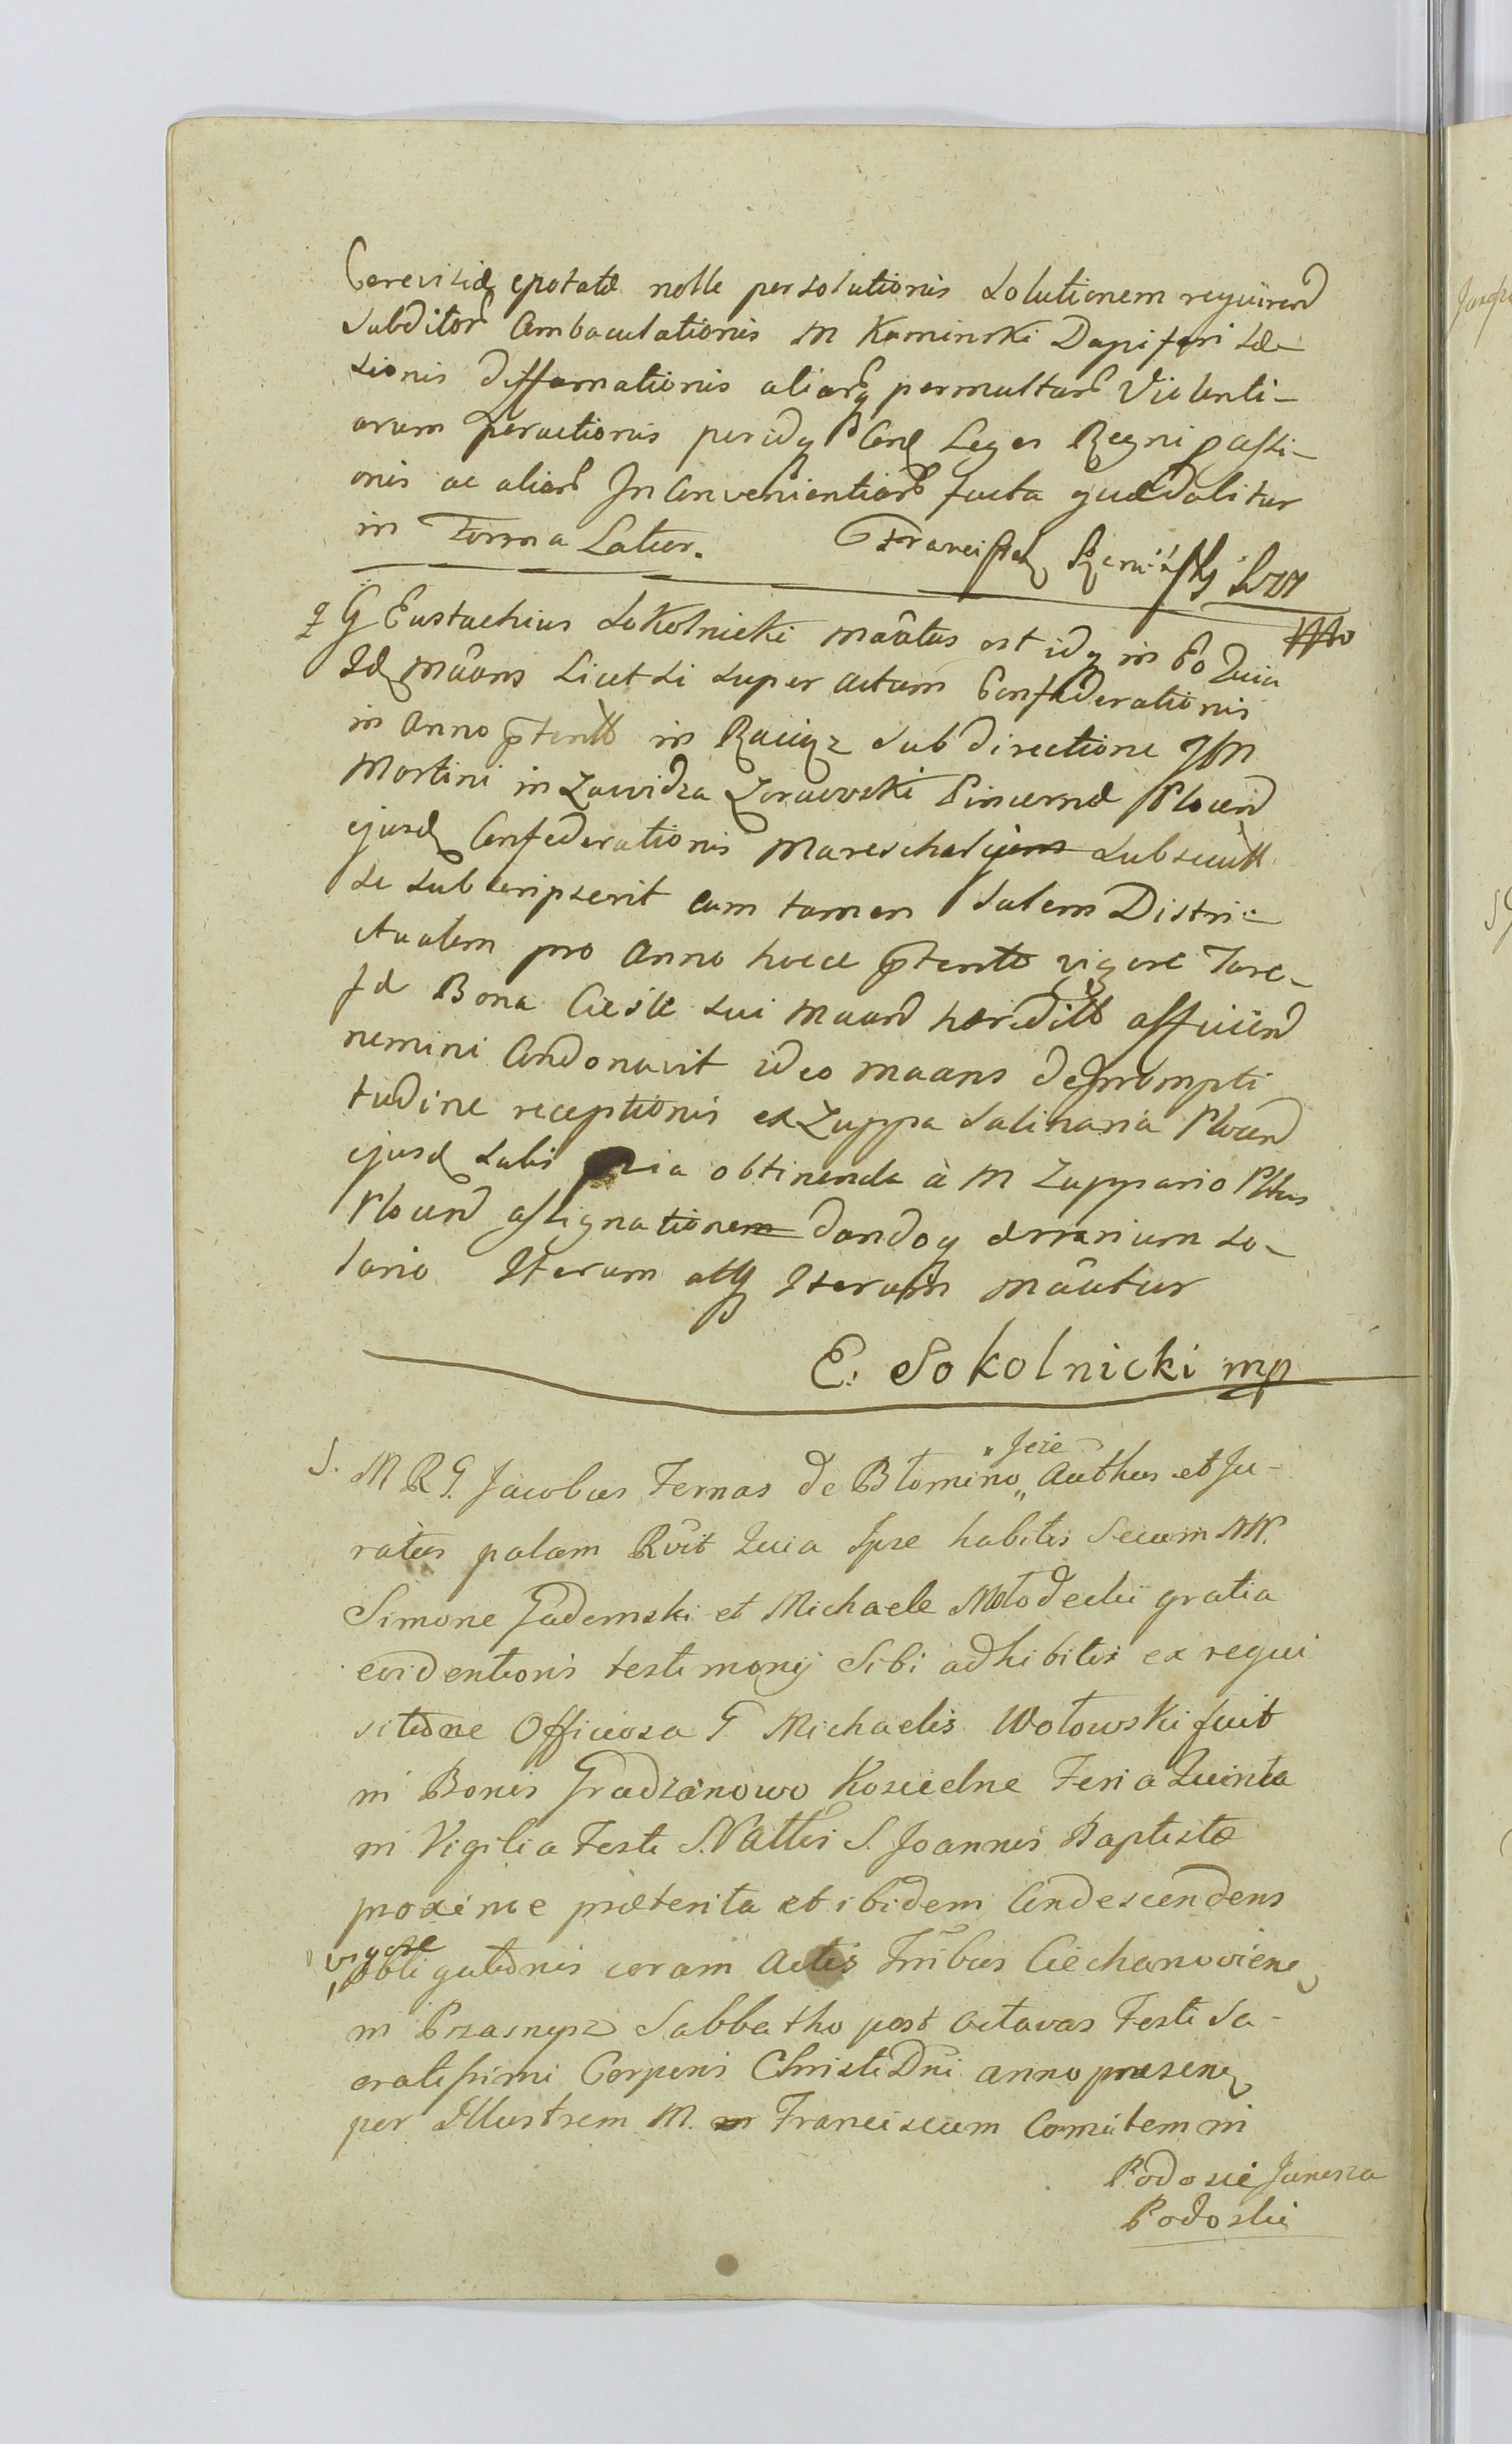 Cerevisiæ epotatæ nolle persolutionis solutionem requirend
Subditor Ambaculationis M Kaminski Dapiferi Læ-
sionis diffamationis aliarq permultar Violenti-
arum peractionis peridq Leges Regni passi-
onis ac aliar Inconvenientiar facta quæ dabitur
in Forma Latior. Francisz
G Eustachius Sokolnicki maatus est idq in Eo Quia
Id maans Licet Si super actum Confæderationis
in Anno pstenti in Raciąz sub directione
Martini in Zawidza Zorawski Pincernæ Plocen
ejusd Confederationis Mareschalij subsecuti
se subscripserit cum tamen Salem Distri-
ctualem pro Anno hocce pstenti vigore Tare-
fæ Bona Ciesle sui maan hæredit afficien
nemini Condonavit ideo maans de prompti
tudine receptionis ex Zuppa Salinaria Plocen
ejusd Salis obtinenda à M Zuppario Pltus
Plocen assignatione dandoq ærrarium so-
lario Iterum atq Iterum maatur
E. Sokolnicki mp
S. M R G. Jacobus Ternas de Błomino „Jeże„ Authus et Ju-
ratus palam Rvit Quia Ipse habitis Secum NN.
Simone Gadomski et Michaele Młodecki gratia
evidentioris testimonij Sibi adhibitis ex requi
sitione Officiosa G Michaelis Wołowski fuit
in Bonis Gradzanowo Koscielne Feria Quinta
in Vigilia Festi S. Nattis S. Joannis Baptistæ
proxime præterita et ibidem Condescendens
„vigore
„obligationis coram Actis Trribus Ciechanoviens
in Przasnysz Sabbatho post octavas Festi Sa-
cratissimi Corporis Christi Dni anno præsen
per Illustrem M. Franciscum Comitem in
Podosie Junosza
Podoski